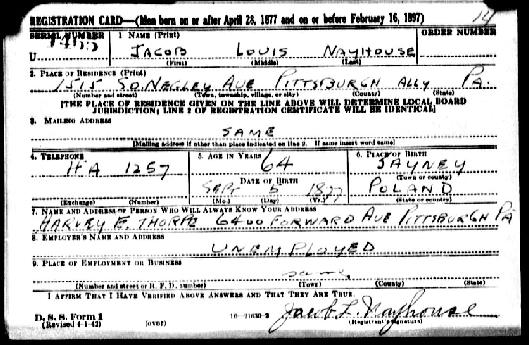 REGISTRATION CARD—(Men born on or after April 28, 1877 and on or before February 16, 1897) 14
SERIAL NUMBER 1. NAME (Print) ORDER NUMBER
U JACOB LOUIS NAYHOUSE
(First) (Middle) (Last)
2. PLACE OF RESIDENCE (Print)
1515 SO. NEGLEY AVE PITTSBURGH ALLY PA
(Number and street) (Town, township, village, or city) (County) (State)
[THE PLACE OF RESIDENCE GIVEN ON THE LINE ABOVE WILL DETERMINE LOCAL BOARD
JURISDICTION; LINE 2 OF REGISTRATION CERTIFICATE WILL BE IDENTICAL]
3. MAILING ADDRESS
SAME
[Mailing address if other than place indicated on line 2. If same insert word same]
4. TELEPHONE 5. AGE IN YEARS 6. PLACE OF BIRTH
HA 1257 64 SAYNEY
DATE OF BIRTH (Town or county)
SEPT 5 1877 POLAND
(Exchange) (Number) (Mo.) (Day) (Yr.) (State or country)
7. NAME AND ADDRESS OF PERSON WHO WILL ALWAYS KNOW YOUR ADDRESS
HARVEY E. THORPE 6400 FORWARD AVE PITTSBURGH PA
8. EMPLOYER'S NAME AND ADDRESS
UNEMPLOYED
9. PLACE OF EMPLOYMENT OR BUSINESS
same
(Number and street or R. F. D. number) (Town) (County) (State)
I AFFIRM THAT I HAVE VERIFIED ABOVE ANSWERS AND THAT THEY ARE TRUE.
D. S. S. Form 1 Jacob L. Nayhouse
(Revised 4-1-42) (over) 16—21630-2 (Registrant's signature)